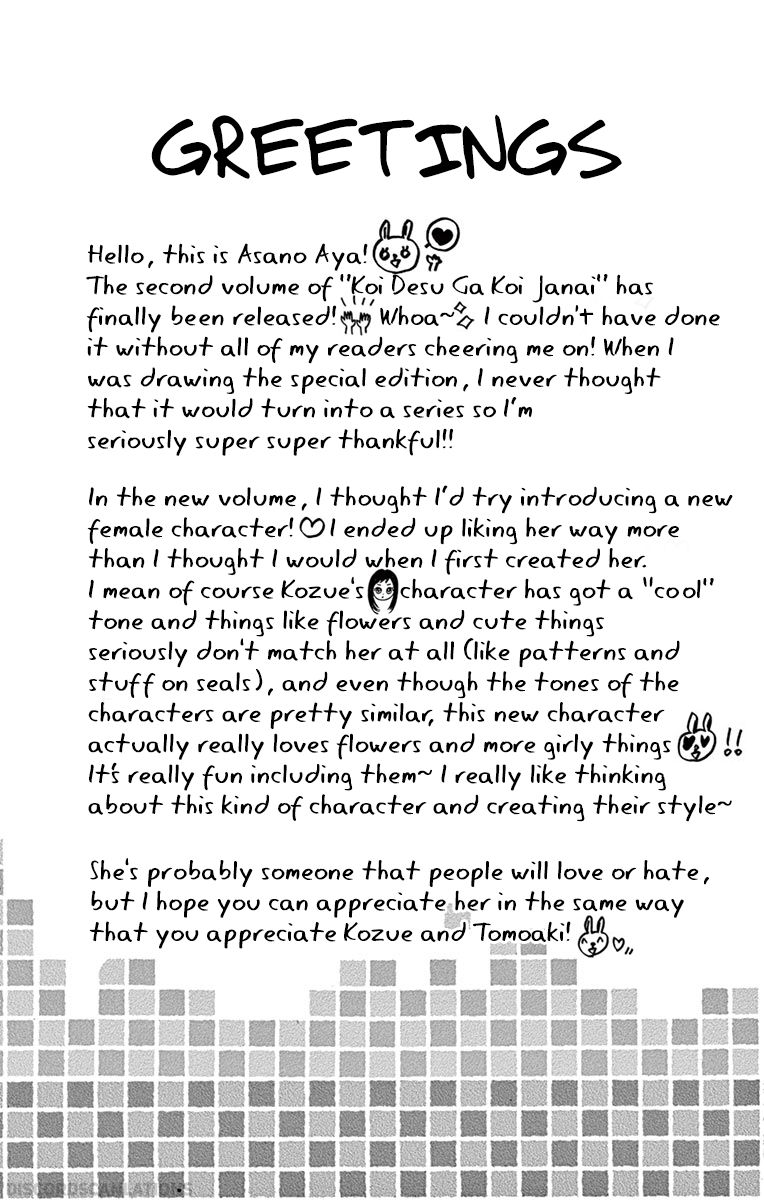 GREETINGS
Hello, this is Asano Aya!
The second volume of "Koi Desu Ga Koi Janai" has
finally been released! Whoa~ I couldn't have done
it without all of my readers cheering me on! When I
was drawing the special edition, I never thought
that it would turn into a series so I'm
seriously super super thankful!!
In the new volume, I thought I'd try introducing a new
female character! ♡ I ended up liking her way more
than I thought I would when I first created her.
I mean of course Kozue's character has got a "cool"
tone and things like flowers and cute things
seriously don't match her at all (like patterns and
stuff on seals), and even though the tones of the
characters are pretty similar, this new character
actually really loves flowers and more girly things !!
It's really fun including them~ I really like thinking
about this kind of character and creating their style~
She's probably someone that people will love or hate,
but I hope you can appreciate her in the same way
that you appreciate Kozue and Tomoaki! ♡
DISCORDSCANLATIONS